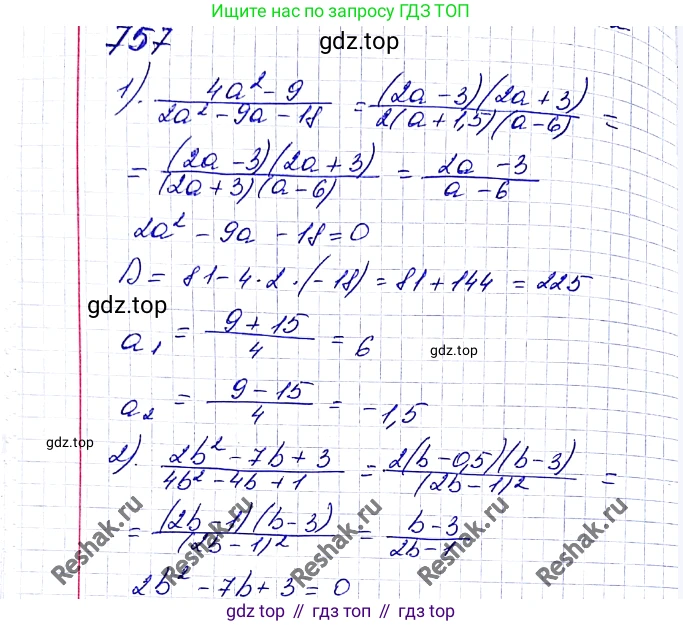 Ищите нас по запросу ГДЗ ТОП
757
gdz.top
1). (4a² - 9)/(2a² - 9a - 18) = ((2a - 3)(2a + 3))/(2(a + 1,5)(a - 6)) =
= ((2a - 3)(2a + 3))/((2a + 3)(a - 6)) = (2a - 3)/(a - 6)
2a² - 9a - 18 = 0
D = 81 - 4·2·(-18) = 81 + 144 = 225
gdz.top
a₁ = (9 + 15)/4 = 6
gdz.top
a₂ = (9 - 15)/4 = -1,5
gdz.top
2). (2b² - 7b + 3)/(4b² - 4b + 1) = (2(b - 0,5)(b - 3))/((2b - 1)²) =
= ((2b - 1)(b - 3))/((2b - 1)²) = (b - 3)/(2b - 1)
Reshak.ru
Reshak.ru
Reshak.ru
Reshak.ru
2b² - 7b + 3 = 0
gdz top // гдз топ // gdz.top